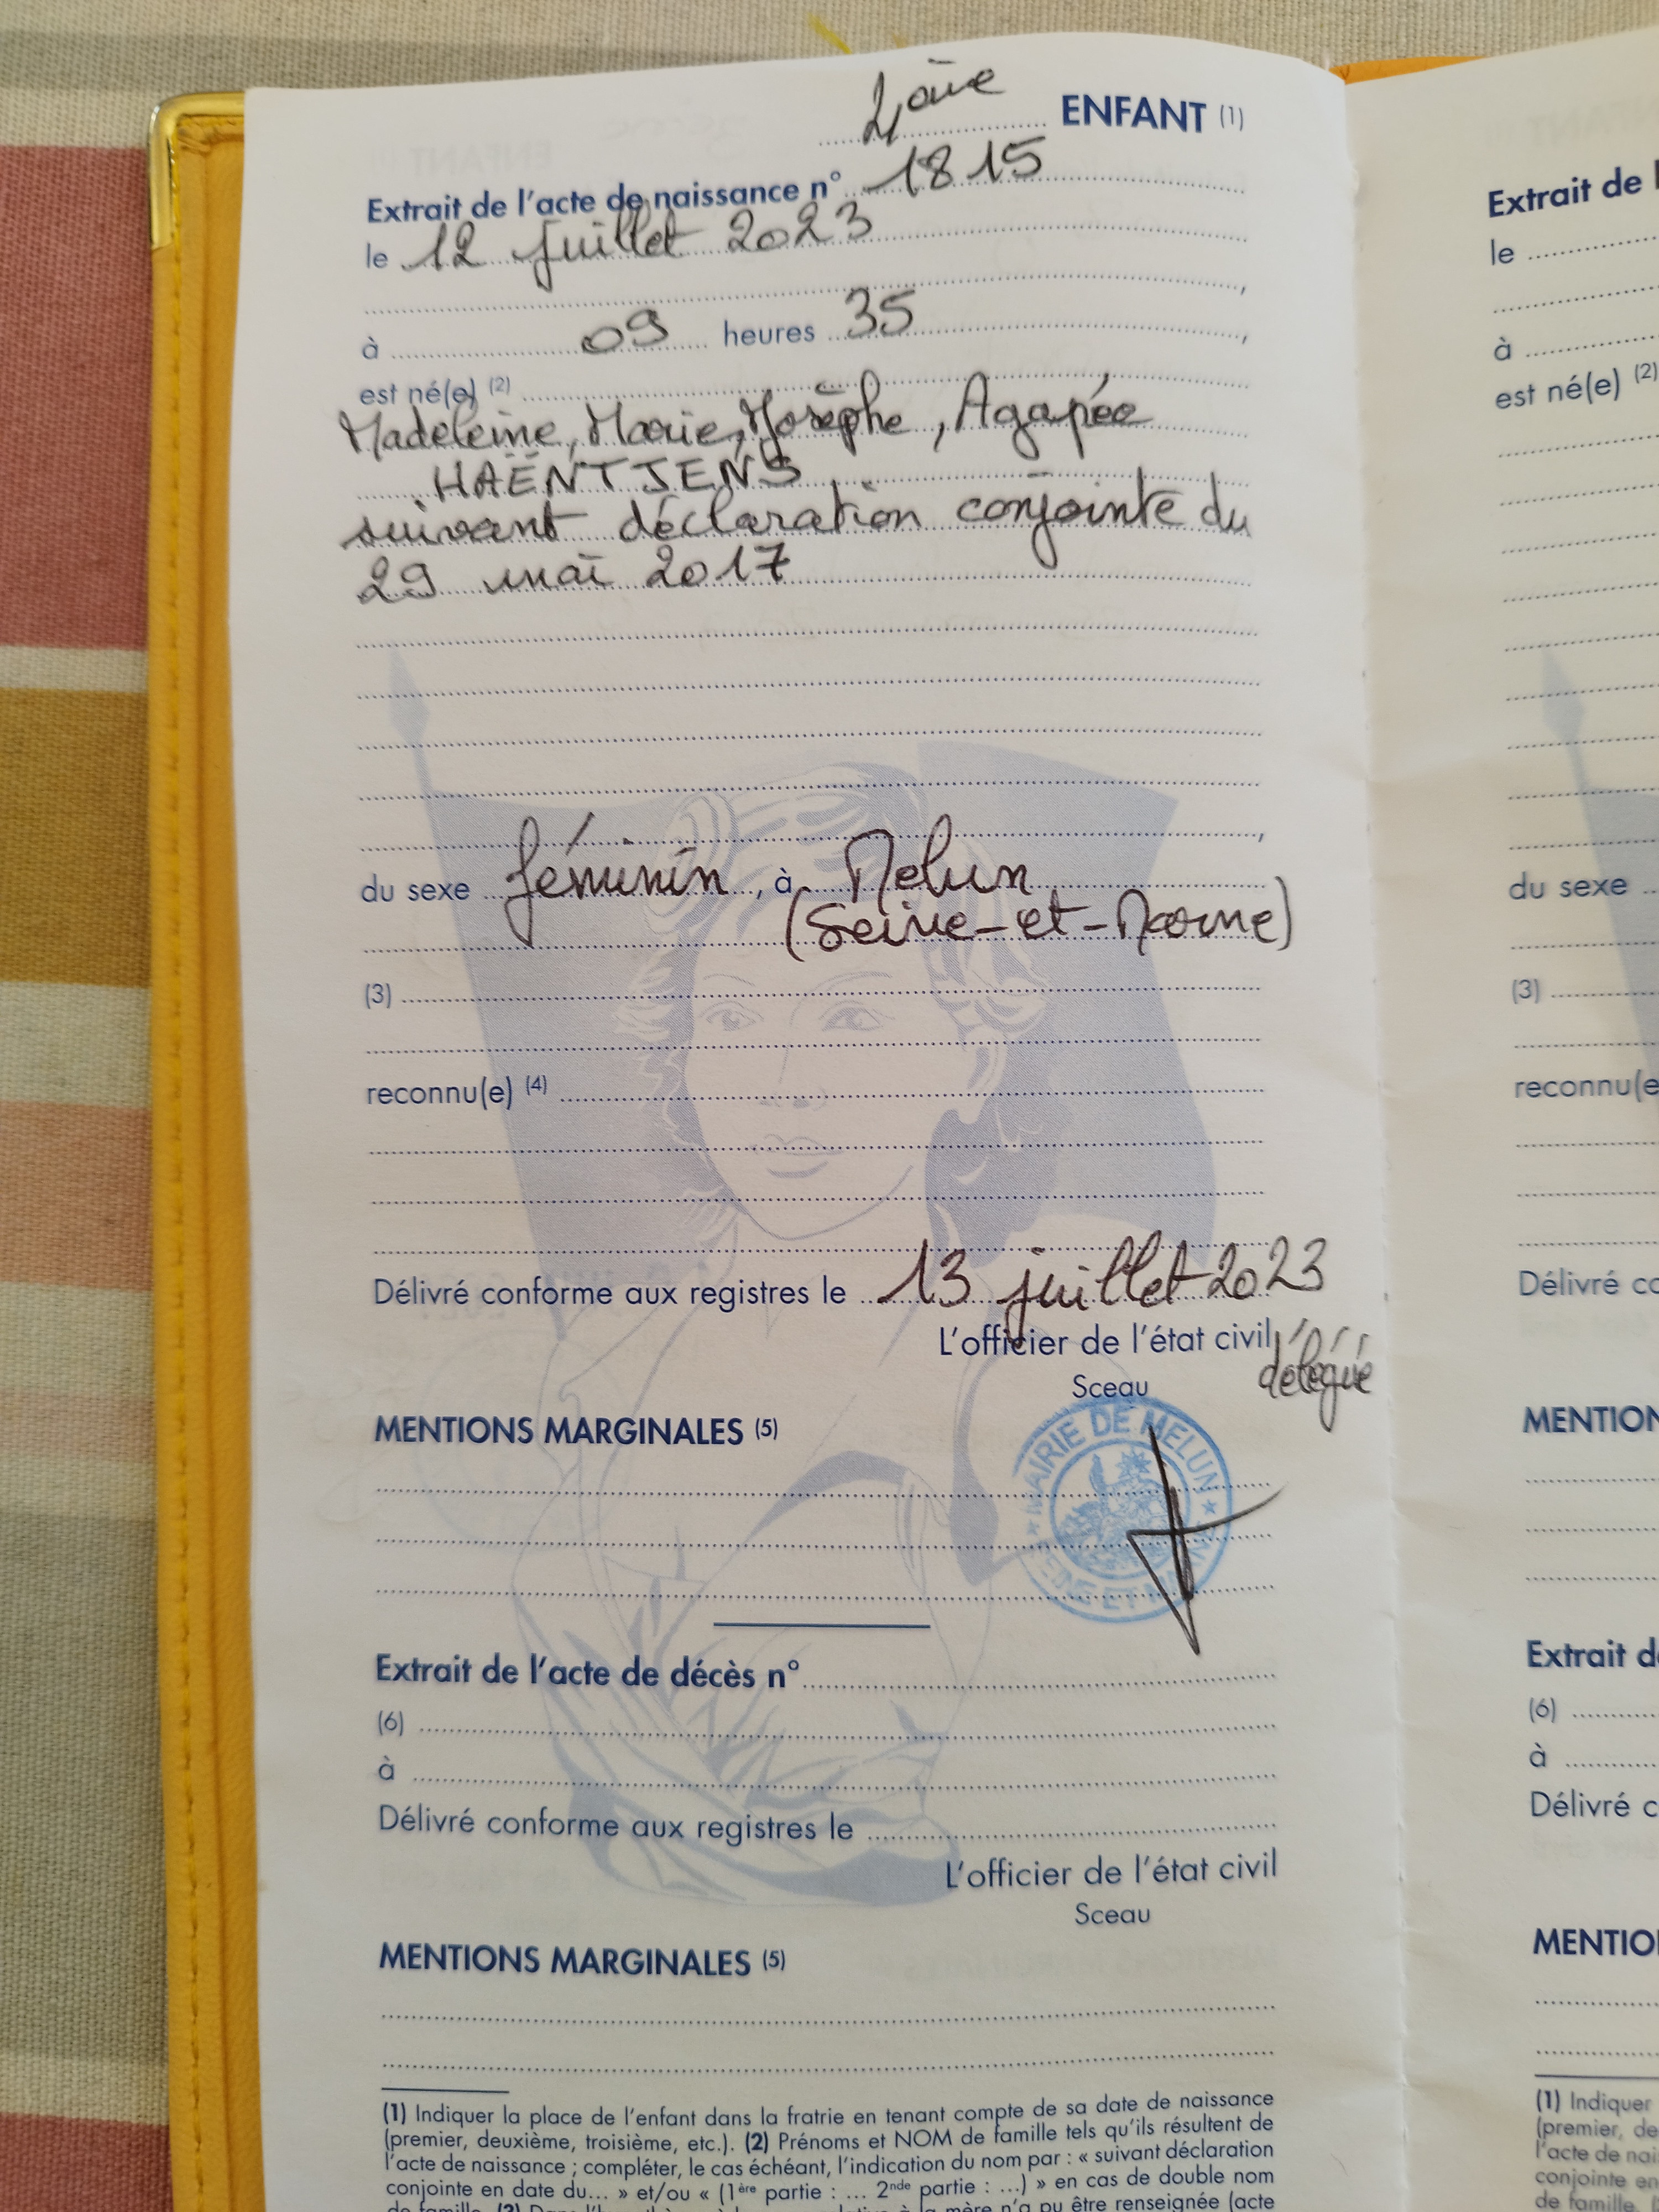 4ème ENFANT (1)
Extrait de l'acte de naissance n° 1815
le 12 juillet 2023
,
à 09 heures 35 ,
est né(e) (2)
Madeleine, Marie, Josèphe, Agapée
HAËNTJENS
suivant déclaration conjointe du
29 mai 2017
,
du sexe féminin, à Melun
(Seine-et-Marne)
(3)
reconnu(e) (4)
Délivré conforme aux registres le 13 juillet 2023
L'officier de l'état civil
délégué
Sceau
MAIRIE DE MELUN
SEINE ET MARNE
MENTIONS MARGINALES (5)
Extrait de l'acte de décès n°
(6)
à
Délivré conforme aux registres le
L'officier de l'état civil
Sceau
MENTIONS MARGINALES (5)
(1) Indiquer la place de l'enfant dans la fratrie en tenant compte de sa date de naissance
(premier, deuxième, troisième, etc.). (2) Prénoms et NOM de famille tels qu'ils résultent de
l'acte de naissance ; compléter, le cas échéant, l'indication du nom par : « suivant déclaration
conjointe en date du... » et/ou « (1ère partie : ... 2nde partie : ...) » en cas de double nom
de famille. (3) Dans l' la mère n'a pu être renseignée (acte
Extrait de l
le
à
est né(e) (2)
du sexe
(3)
reconnu(e
Délivré co
MENTION
Extrait de
(6)
à
Délivré c
MENTIO
(1) Indiquer
(premier, de
l'acte de nai
conjointe en
de famille.